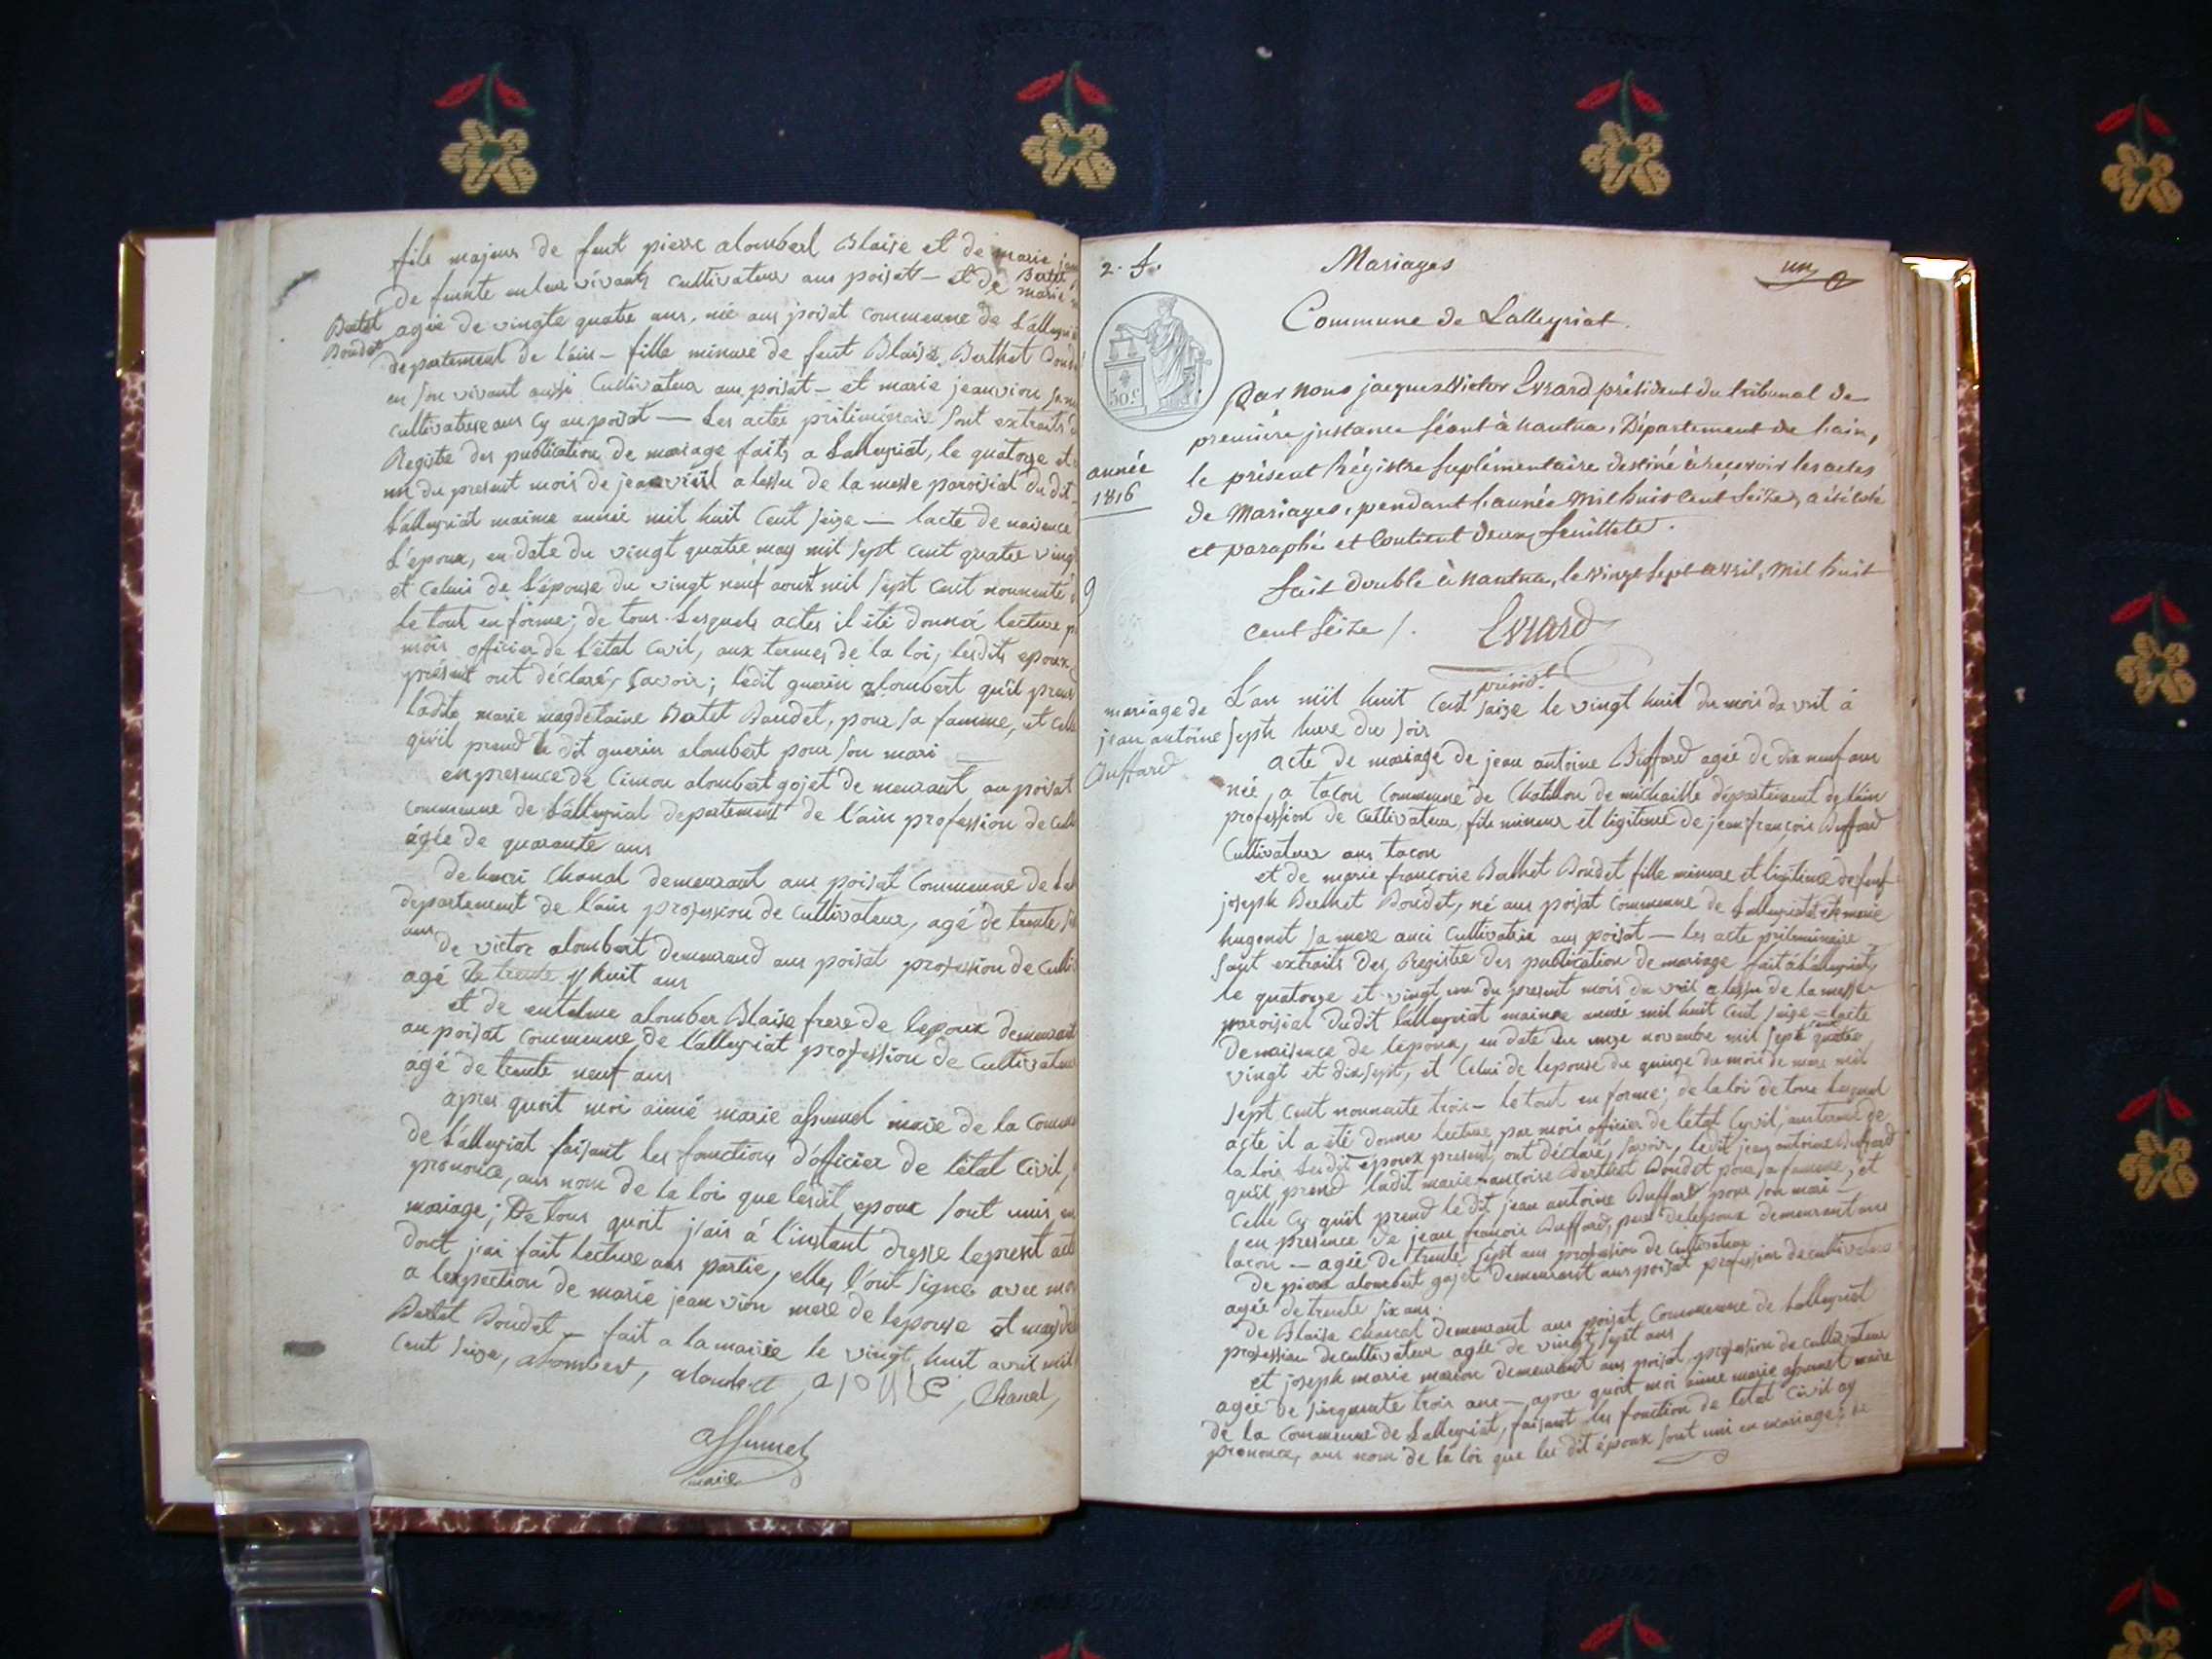 fils majeur de feut pierre alombert Blaise et de marie
de feunte en leur vivants cultivateur aus poisat — et de marie
Bertet
Bertet Boudet
agée de vingte quatre ans, née aus poisat commeune de Lalleyriat
departement de l'ain — fille mineure de feut Blaise Berthet Boudet
en son vivant aussi Cultivateur aus poisat — et marie jeanvion sa
cultivatrice aus Cy au poisat — Les actes préliminaire sont extraits
Registre des publication de mariage faits a Lalleyriat, le quatorze et
un du present mois de a lissu de la messe paroisial du dit
Lalleyriat maime année mil huit Cent seize — lacte de naisence
L'époux, en date du vingt quatre may mil sept cent quatre vingt
et Celui de L'épouse du vingt neuf aoust mil sept cent nonnente
le tout en forme; de tous Lesquels actes il été donná lecture
moi officier de L'état Civil, aux termes de la loi, lesdits epoux
présent ont déclaré, savoir; ledit guerin alombert qu'il prend
ladite marie magdelaine Bertet Boudet, pour sa famme, et Celle
qu'il prend le dit guerin alombert pour son mari
en presence de Cimon alombert gojet de meurant au poisat
commeune de Lalleyriat departement de l'ain profession de
âgée de quarante ans
de henri Chanal demeurant aus poisat Commeune de
departement de l'ain profession de Cultivateur, agé de trente
ans
de victor alombert demeurand aus poisat profession de
agé de trente y huit ans
et de entelme alomber Blaise frere de lepoux demeurant
au poisat commeune de Lalleyriat profession de Cultivateur
agé de trente neuf ans
apres quoit moi aimé marie assumel maire de la Commune
de Lalleyriat faisant les fonctions d'officier de l'état Civil,
prononcé, aus nom de la loi que lesdit epoux sont unis en
mariage; De tous quoit j'ais á l'instant dressé le present acte
dont j'ai fait lecture aus partie, elles l'ont signé avec moi
a lexpection de marie jean vion mere de lepouse et
Bertet Boudet — fait a la mairie le vingt huit avril mil
Cent seize, alombert, alombert, Chanal,
assumel
maire
2. f.
Mariages
un
Commune de Lalleyriat.
50 c.
Par nous jacques Victor Evrard président du tribunal de
première instance séant à nantua, Département de l'ain,
année
1816
le présent Régistre suplémentaire destiné à recevoir les actes
de Mariages, pendant l'année Mil huit Cent Seize, a été coté
et paraphé et Contient deux feuillets.
Fait double à Nantua, le vingt sept avril, Mil huit
cent Seize /. Evrard
présidt
mariage de
jean antoine
Buffard
L'an mil huit Cent saize le vingt huit du mois da vril á
septe hure du soir
acte de mariage de jean antoine Buffard agée de dix neuf ans
née, a tacon Commeune de Chatillon de michaille département de l'ain
profession de Cultivateur, fils mineur et légitime de jean françois Buffard
Cultivateur aus tacon
et de marie françoise Berthet Boudet fille mineure et ligitime de feut
joseph Berthet Boudet, né aus poisat Commeune de Lalleyriat et marie
hugonet sa mere auci Cultivatrie aus poisat — les acte préliminaire
sont extraits des Registre des publication de mariage fait á Lalleyriat,
le quatorze et vingt un du present mois da vril a lissu de la messe
paroisial dudit Lalleyriat maimee année mil huit Cent seize — lacte
de naisence de lépoux, en date du onze novembre mil sept cent quatre
vingt et dix sept, et Celui de lepouse du quinze du mois de mars mil
sept cent nonnante trois — le tout en forme; de la loi de tous lesquel
acte il a été donné lecture par moi officier de l'état Cyvil, aus terme de
la loi Lesdit époux present, ont déclaré, savoir, ledit jean antoine Buffard
qu'il prend ladit marie françoise Berthet Boudet pour sa famme, et
Celle Cy qu'il prend le dit jean antoine Buffard pour son mari —
en presence de jean françois Buffard, pere de lepoux demeurant aus
tacon — agée de trente sept ans profession de Cultivateur
de piere alombert gojet demeurant aus poisat profession de cultivateur
agée de trente six ans.
de Blaise Chanal demeurant aus poisat Commeune de Lalleyriat
profession de cultivateur agée de vingt sept ans
et joseph marie marion demeurant aus poisat profession de cultivateur
agée de sinquante trois ans — apre quoit moi aimé marie assumel maire
de la Commeune de Lalleyriat, faisant les fonction de letat Civil ay
prononcé, aus nom de la loi que les dit époux sont uni en mariage; de